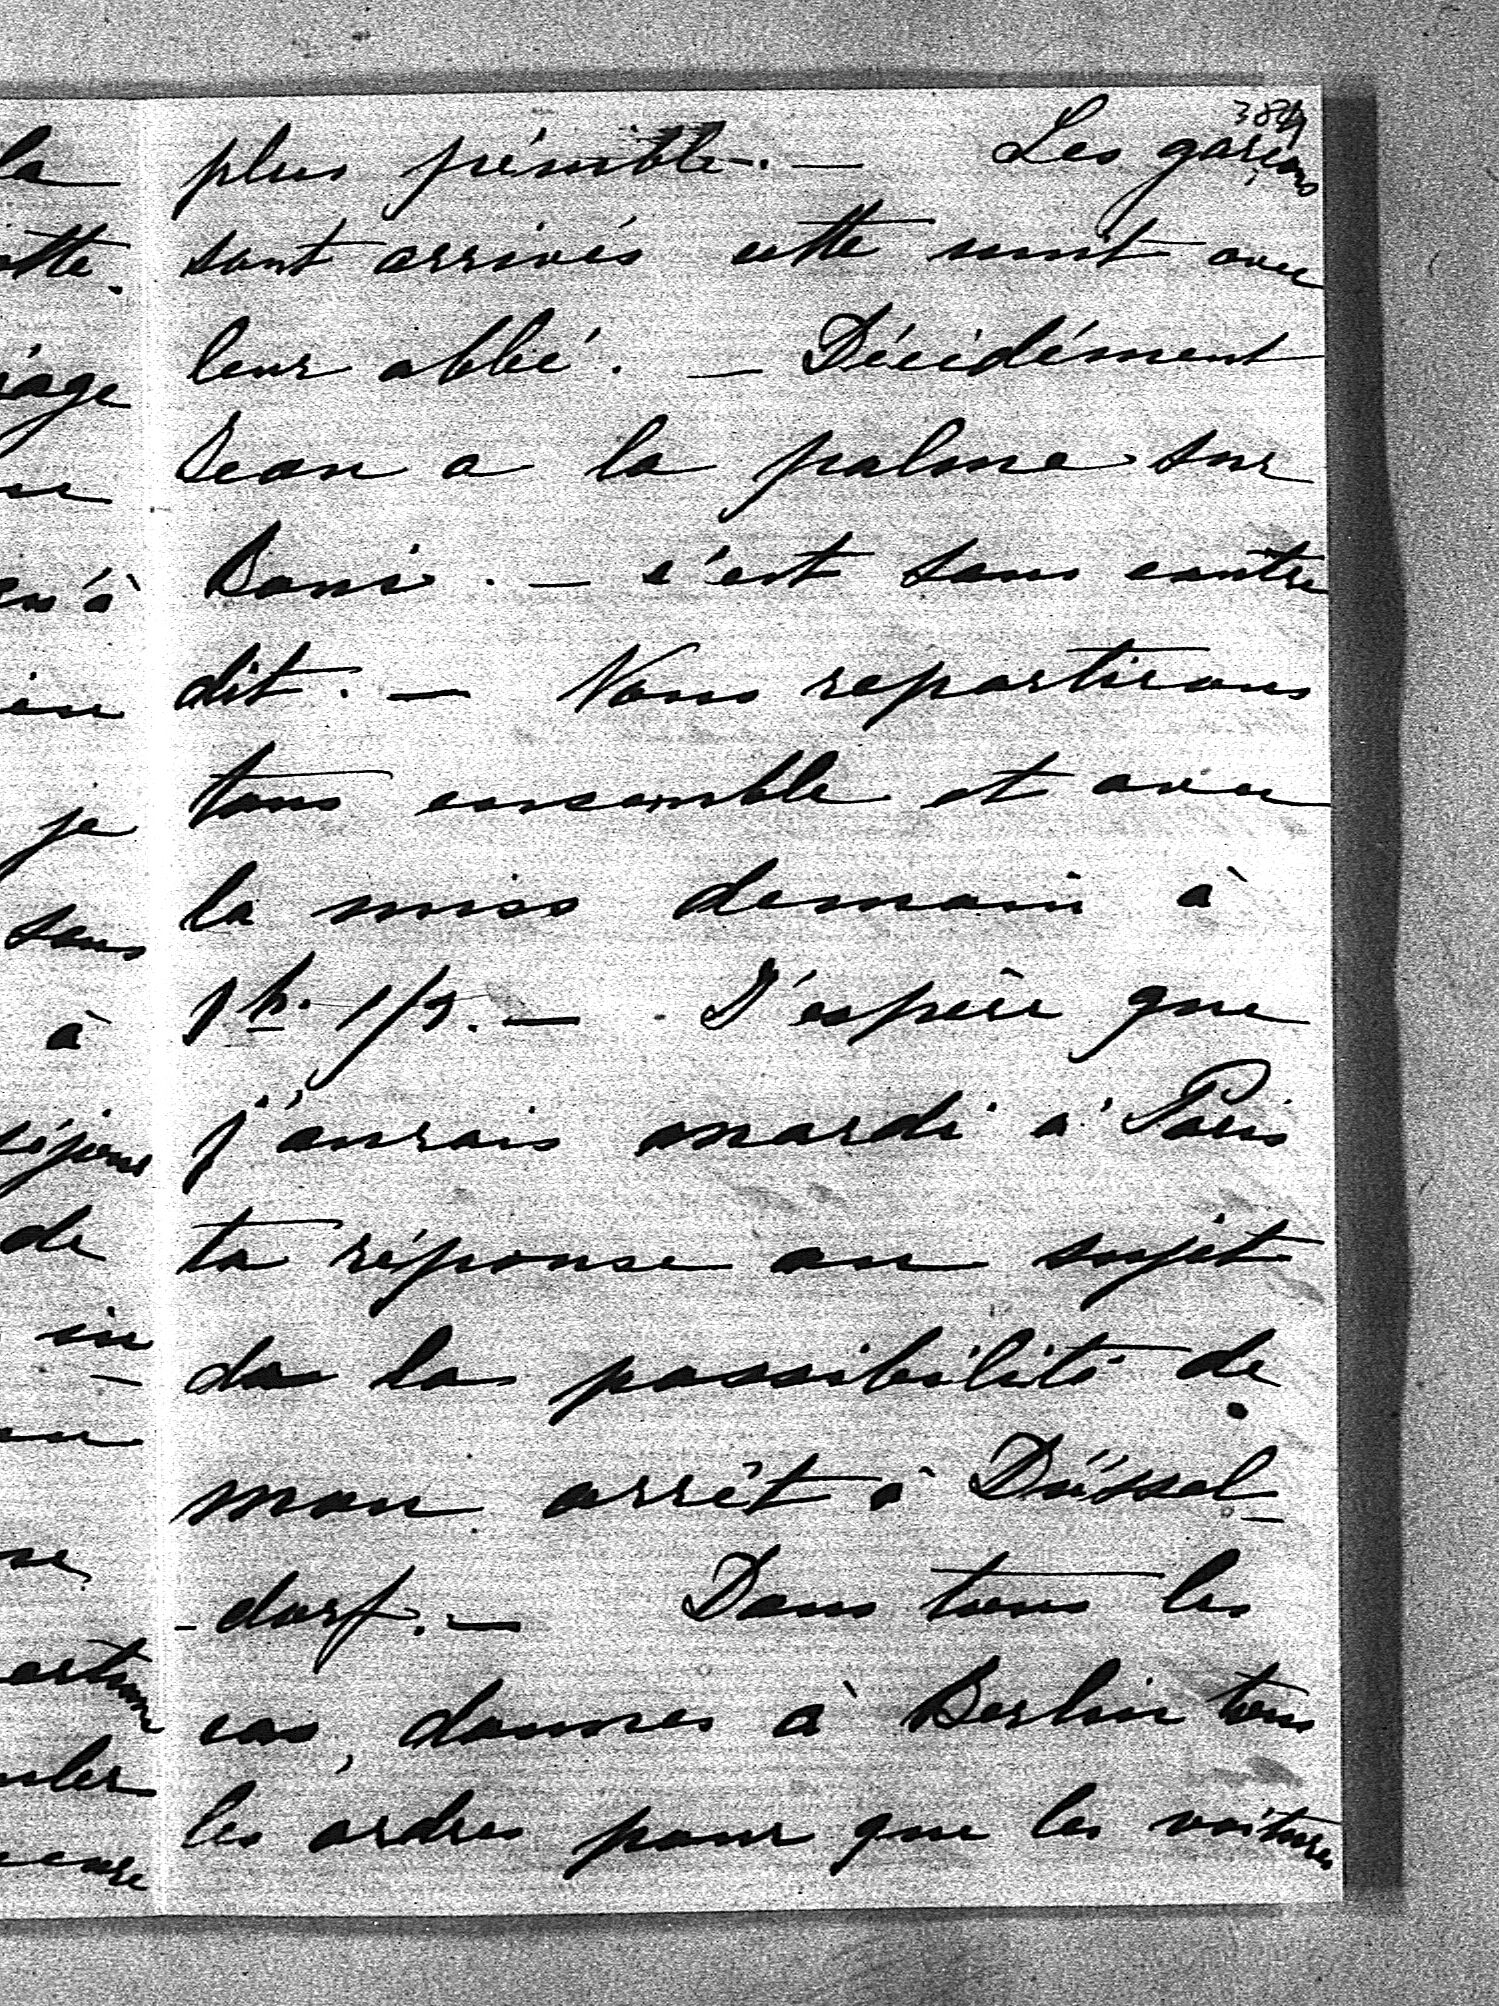 384
plus pénible. — Les garçons
sont arrivés cette nuit avec
leur abbé. — Décidément
Jean a la palme sur
Boni. — c'est sans contre
dit. — Nous repartirons
tous ensemble et avec
la miss demain à
1 h. 1/2. — J'espère que
j'aurais mardi à Paris
ta réponse au sujet
de la possibilité de
mon arrêt à Düssel-
-dorf. — Dans tous les
cas, donnes à Berlin tous
les ordres pour que les voitures
la
je
sans
à
séjour
de